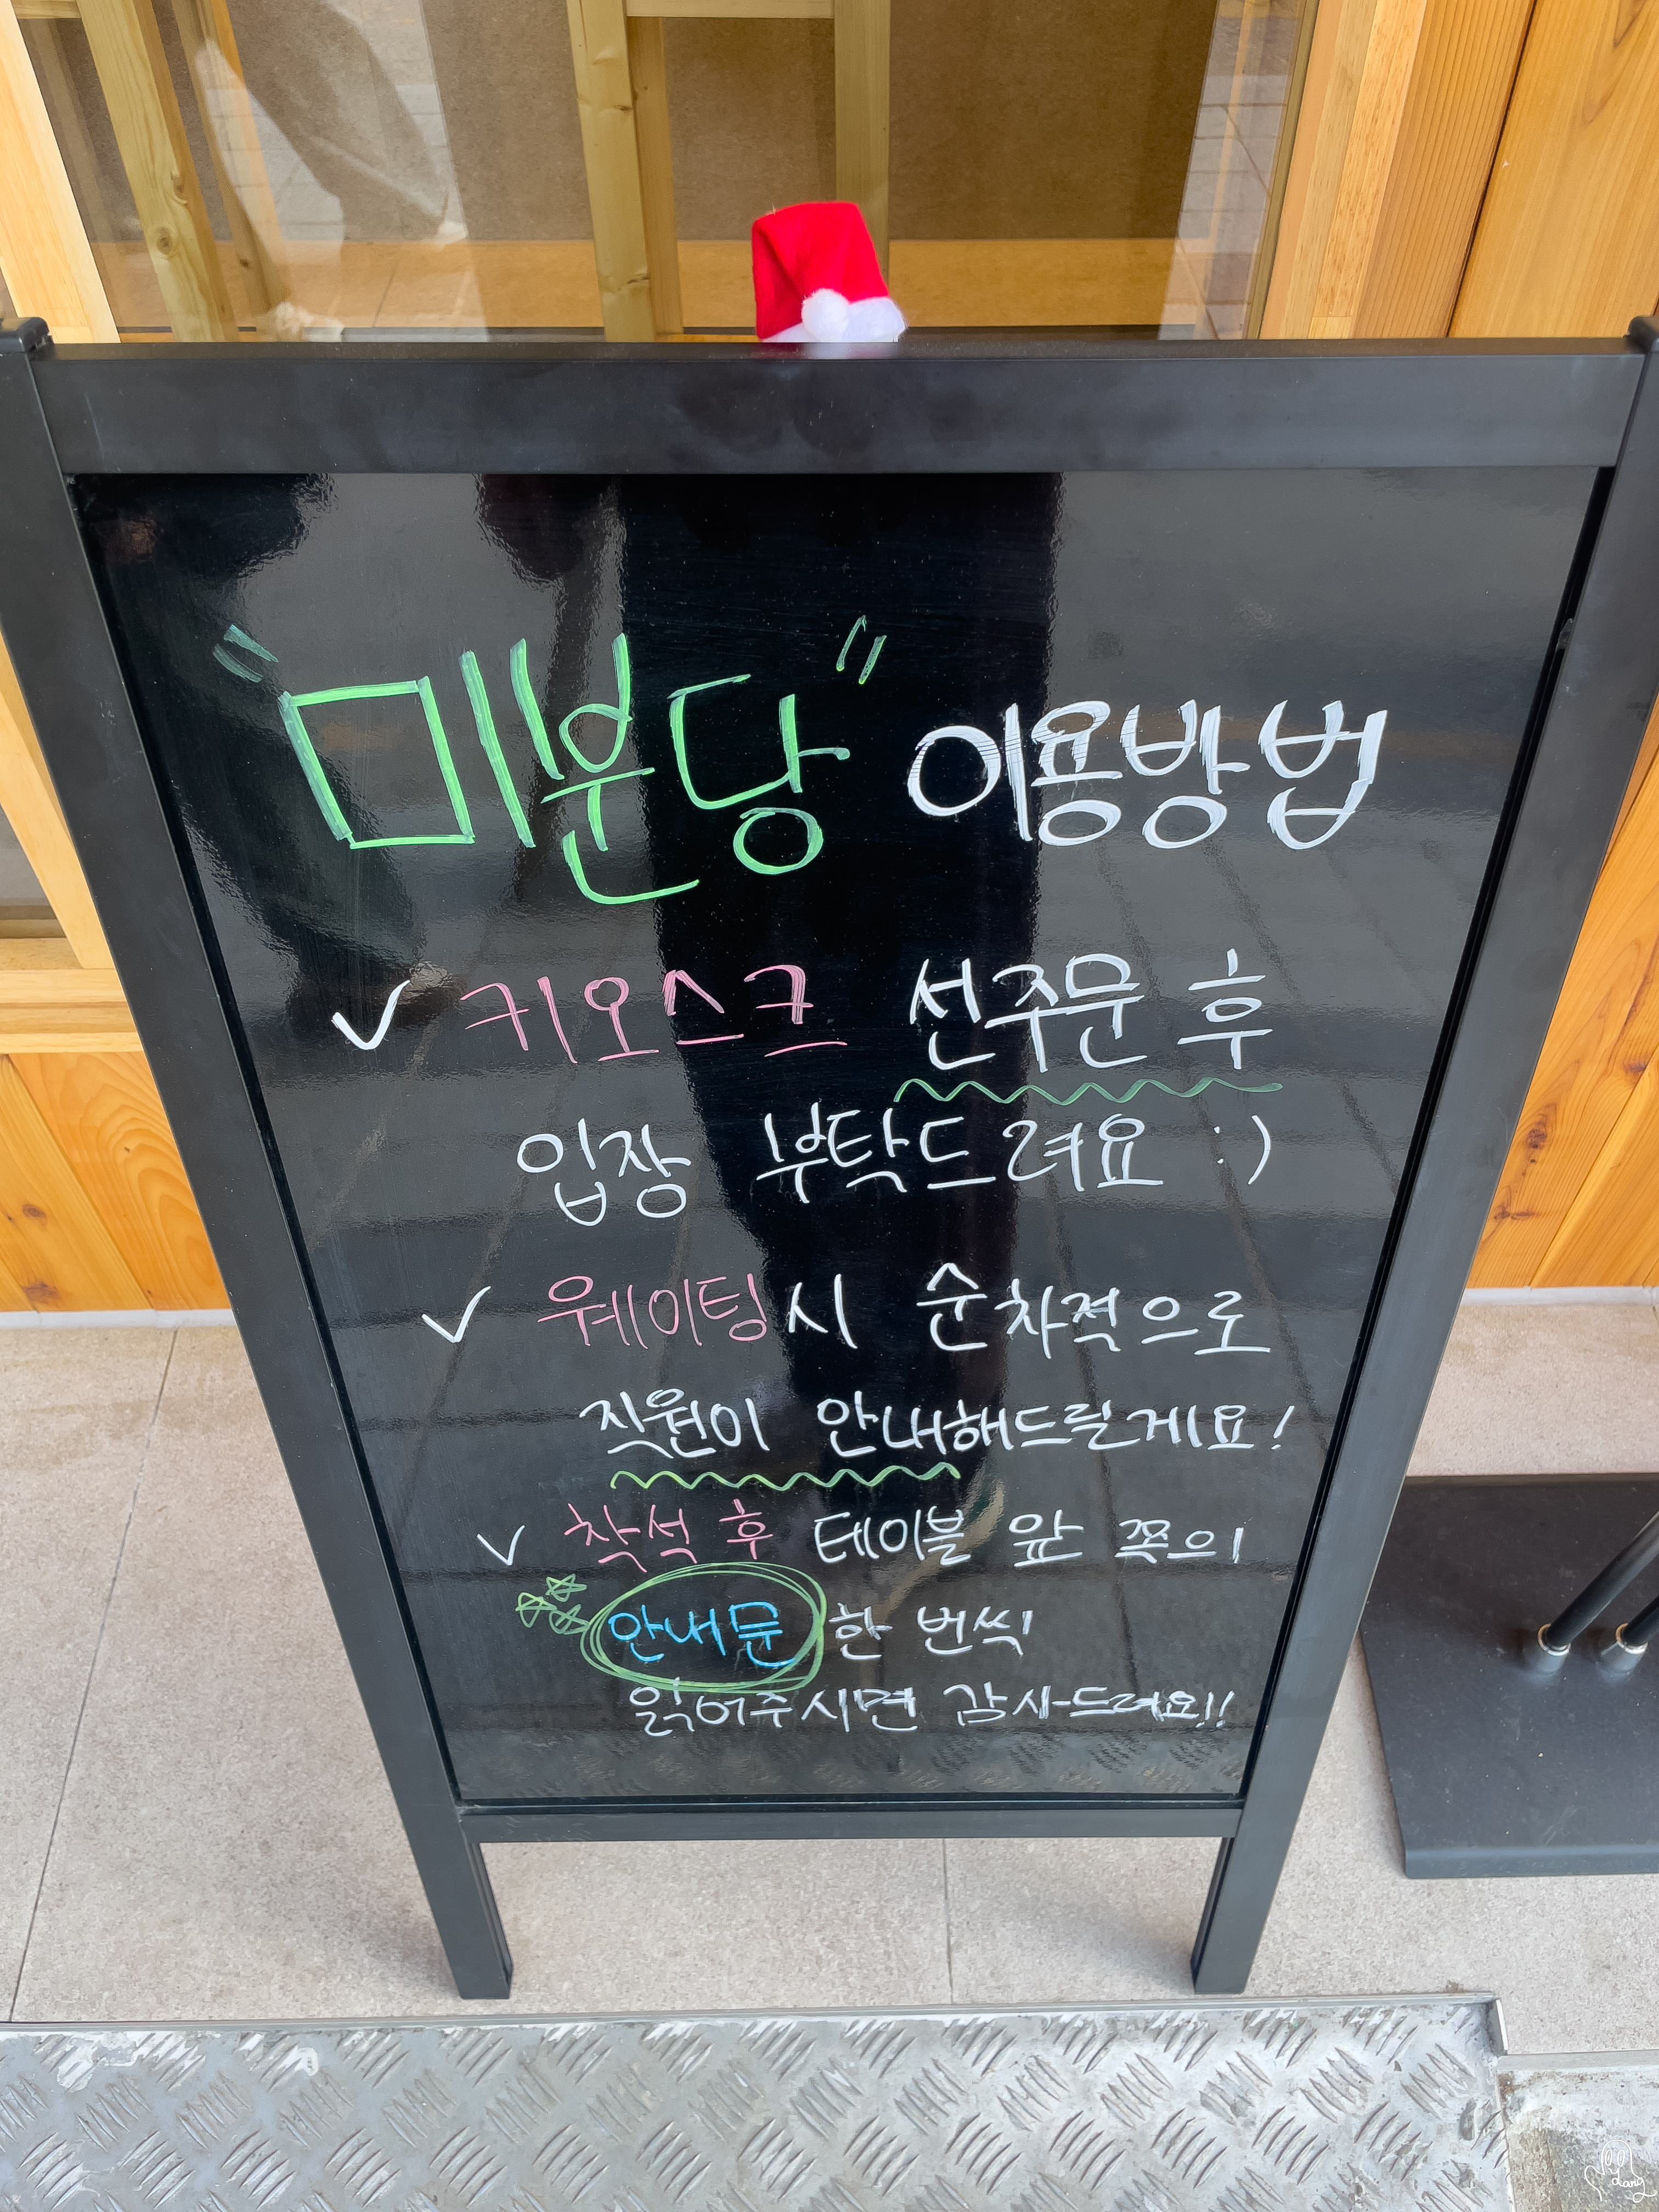 "미분당" 이용방법
✓ 키오스크 선주문 후
입장 부탁드려요 :)
✓ 웨이팅시 순차적으로
직원이 안내해드릴게요!
✓ 착석 후 테이블 앞 쪽의
안내문 한 번씩
읽어주시면 감사드려요!!